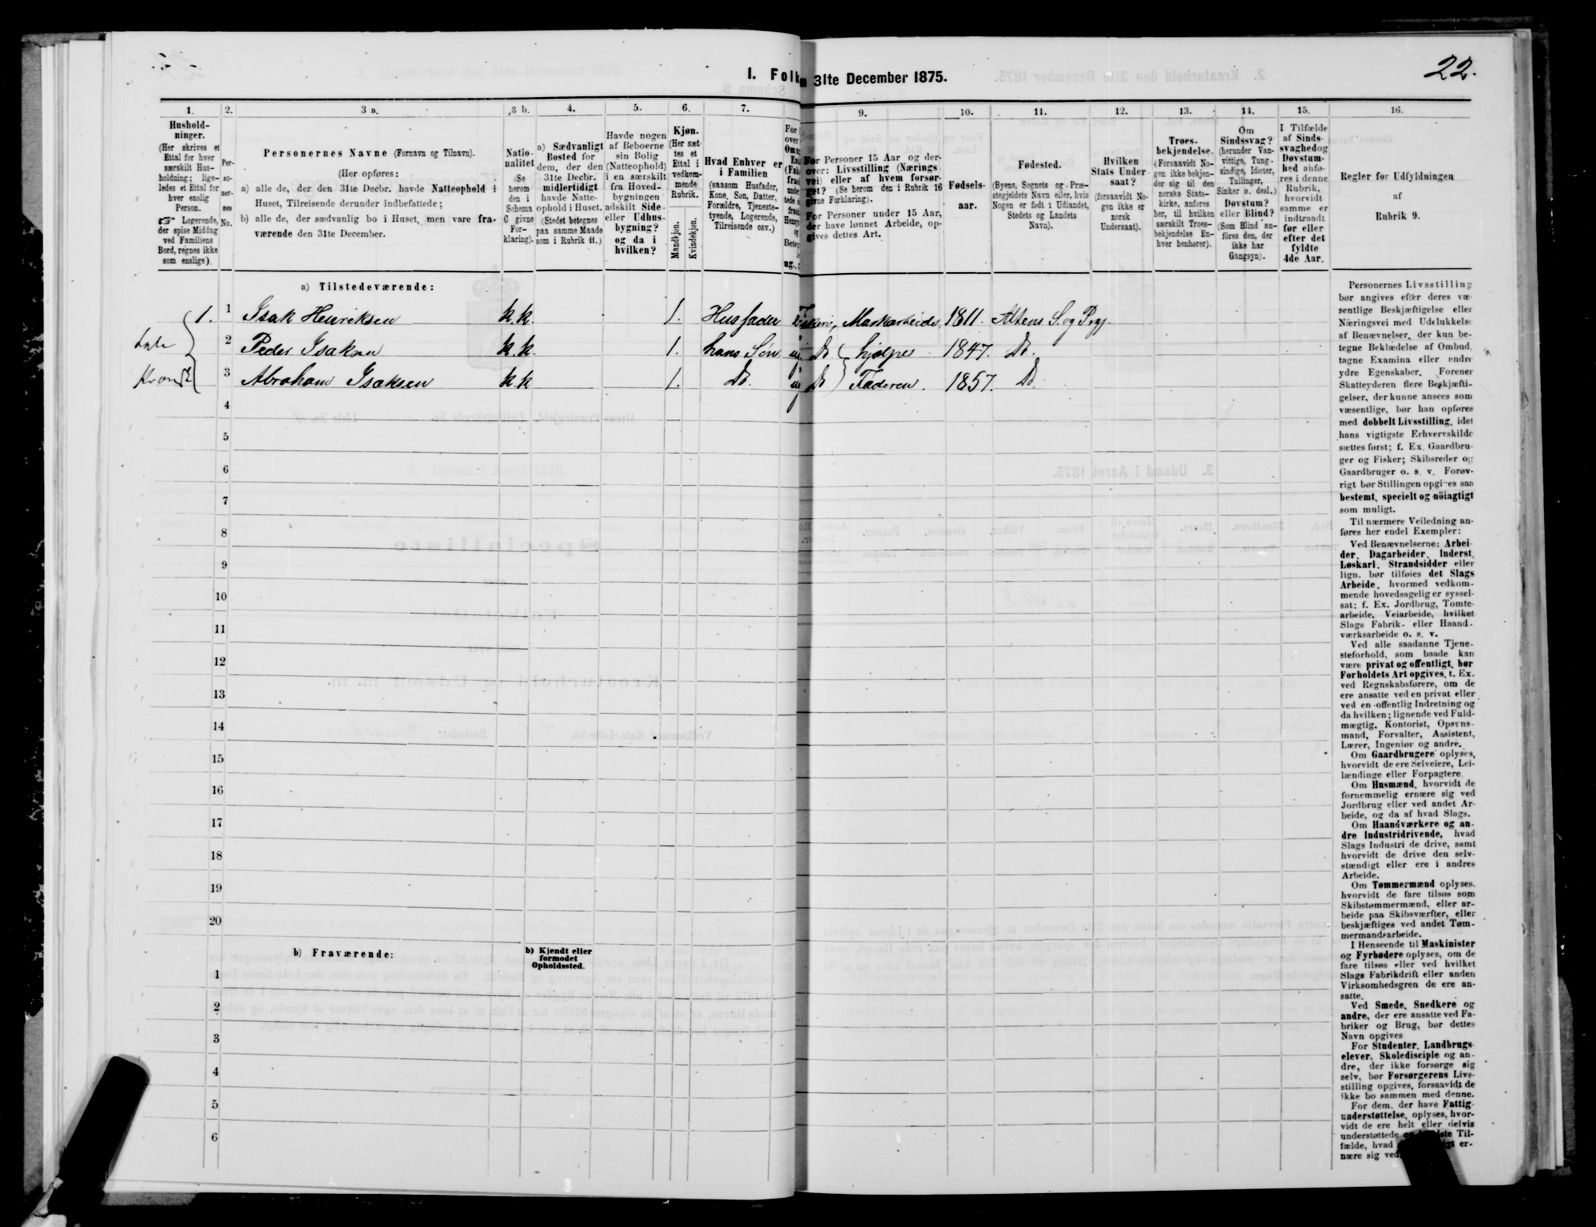 22.
I. Folk
31te December 1875.
1.
2.
3 a.
3 b.
4.
5.
6.
7.
9.
10.
11.
12.
13.
14.
15.
16.
Hushold-
ninger.
(Her skrives et
Ettal for hver
særskilt Hus-
holdning; lige-
ledes et Ettal for
hver enslig
Person.
Logerende,
der spise Middag
ved Familiens
Bord, regnes ikke
som enslige).
Per-
so-
ner-
nes
No.
Personernes Navne (Fornavn og Tilnavn).
(Her opføres:
a) alle de, der den 31te Decbr. havde Natteophold i
Huset, Tilreisende derunder indbefattede;
b) alle de, der sædvanlig bo i Huset, men vare fra-
værende den 31te December.
Natio-
nalitet
(Se
herom
den i
Schema
6 givne
For-
klaring).
a) Sædvanligt
Bosted for
dem, der den
31te Decbr.
midlertidigt
havde Natte-
ophold i Huset.
(Stedet betegnes
paa samme Maade
som i Rubrik 11.)
Havde nogen
af Beboerne
sin Bolig
(Natteophold)
i en særskilt
fra Hoved-
bygningen
adskilt Side-
eller Udhus-
bygning?
og da i
hvilken?
Kjøn.
(Her sæt-
tes et
Ettal i
vedkom-
mende
Rubrik.
Mandkjøn.
Kvindekjøn.
Hvad Enhver er
i Familien
(saasom Husfader,
Kone, Søn, Datter,
Forældre, Tjeneste-
tyende, Logerende,
Tilreisende osv.)
For Personer 15 Aar og der-
over: Livsstilling (Nærings
vei) eller af hvem forsør-
get? (Se herom den i Rubrik 16
givne Forklaring).
For Personer under 15 Aar,
der have lønnet Arbeide, op-
gives dettes Art.
Fødsels-
aar.
Fødested.
(Byens, Sognets og Præ-
stegjeldets Navn eller, hvis
Nogen er født i Udlandet,
Stedets og Landets
Navn).
Hvilken
Stats Under-
saat?
(forsaavidt No-
gen ikke er
norsk
Undersaat).
Troes-
bekjendelse.
(Forsaavidt No-
gen ikke bekjen-
der sig til den
norske Stats-
kirke, anføres
her, til hvilken
særskilt Troes-
bekjendelse En-
hver henhører).
Om
Sindssvag?
(herunder Van-
vittige, Tung-
sindige, Idioter,
Tullinger,
Sinker o. desl.)
Døvstum?
eller Blind?
(Som Blind an-
føres den, der
ikke har
Gangsyn).
I Tilfælde
af Sinds-
svaghed og
Døvstum-
hed anfø-
res i denne
Rubrik,
hvorvidt
samme er
indtraadt
før eller
efter det
fyldte
4de Aar.
Regler før Udfyldningen
af
Rubrik 9.
a) Tilstedeværende:
1. 1 Isak Henriksen k.k. 1. Husfader Fiskeri, Markarbeide 1811 Altens S. og Prgj.
2 Peder Isaksen k.k. 1. hans Søn Do hjelper 1847. Do.
3 Abraham Isaksen k.k 1. Do. Do Faderen. 1857. Do.
4
5
6
7
8
9
10
11
12
13
14
15
16
17
18
19
20
b) Fraværende:
b) Kjendt eller
formodet
Opholdssted.
1
2
3
4
5
6
Personernes Livsstilling
bør angives efter deres væ-
sentlige Beskjæftigelse eller
Næringsvei med Udelukkelse
af Benævnelser, der kun be-
tegne Beklædelse af Ombud,
tagne Examina eller andre
ydre Egenskaber. Forener
Skatteyderen flere Beskjæfti-
gelser, der kunne ansees som
væsentlige, bør han opføres
med dobbelt Livsstilling, idet
hans vigtigste Erhvervskilde
sættes først; f. Ex. Gaardbru-
ger og Fisker; Skibsreder og
Gaardbruger o. s. v. Forøv-
rigt bør Stillingen opgives saa
bestemt, specielt og nöiagtigt
som muligt.
Til nærmere Veiledning an-
føres her endel Exempler:
Ved Benævnelserne: Arbei-
der, Dagarbeider, Inderst,
Løskarl, Strandsidder eller
lign. bør tilføies det Slags
Arbeide, hvormed vedkom-
mende hovedsagelig er syssel-
sat; f. Ex. Jordbrug, Tomte-
arbeide, Veiarbeide, hvilket
Slags Fabrik- eller Haand-
værksarbeide o. s. v.
Ved alle saadanne Tjene-
steforhold, som baade kan
være privat og offentligt, bør
Forholdets Art opgives, t. Ex.
ved Regnskabsførere, om de
ere ansatte ved en privat eller
ved en offentlig Indretning og
da hvilken; lignende ved Fuld-
mægtig, Kontorist, Opsyns-
mand, Forvalter, Assistent,
Lærer, Ingeniør og andre.
Om Gaardbrugere oplyses,
hvorvidt de ere Selveiere, Lei-
lændinge eller Forpagtere.
Om Husmænd, hvorvidt de
fornemmelig ernære sig ved
Jordbrug eller ved andet Ar-
beide, og da af hvad Slags.
Om Haandværkere og an-
dre Industridrivende, hvad
Slags Industri de drive, samt
hvorvidt de drive den selv-
stændigt eller ere i andres
Arbeide.
Om Tømmermænd oplyses,
hvorvidt de fare tilsøs som
Skibstømmermænd, eller ar-
beide paa Skibsværfter, eller
beskjæftiges ved andet Tøm-
mermandsarbeide.
I Henseende til Maskinister
og Fyrbødere oplyses, om de
fare tilsøs eller ved hvilket
Slags Fabrikdrift eller anden
Virksomhedsgren de ere an-
satte.
Ved Smede, Snedkere og
andre, der ere ansatte ved Fa-
briker og Brug, bør dettes
Navn opgives
For Studenter, Landbrugs
elever, Skoledisciple og an-
dre, der ikke forsørge sig
selv, bør Forsørgerens Livs-
stilling opgives, forsaavidt de
ikke bo sammen med denne.
For dem, der have Fattig-
understøttelse, oplyses, hvor-
vidt de ere helt eller delvis
understøttede
fælde, hvad
nære sig